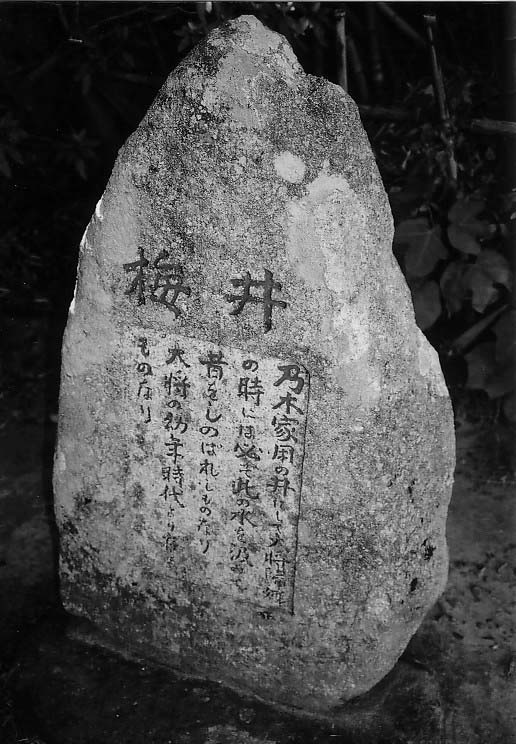 井梅
乃木家用の井にして大将帰省
の時には必ず此の水を汲みて
昔をしのばれしものなり
大将の幼年時代より
ものなり